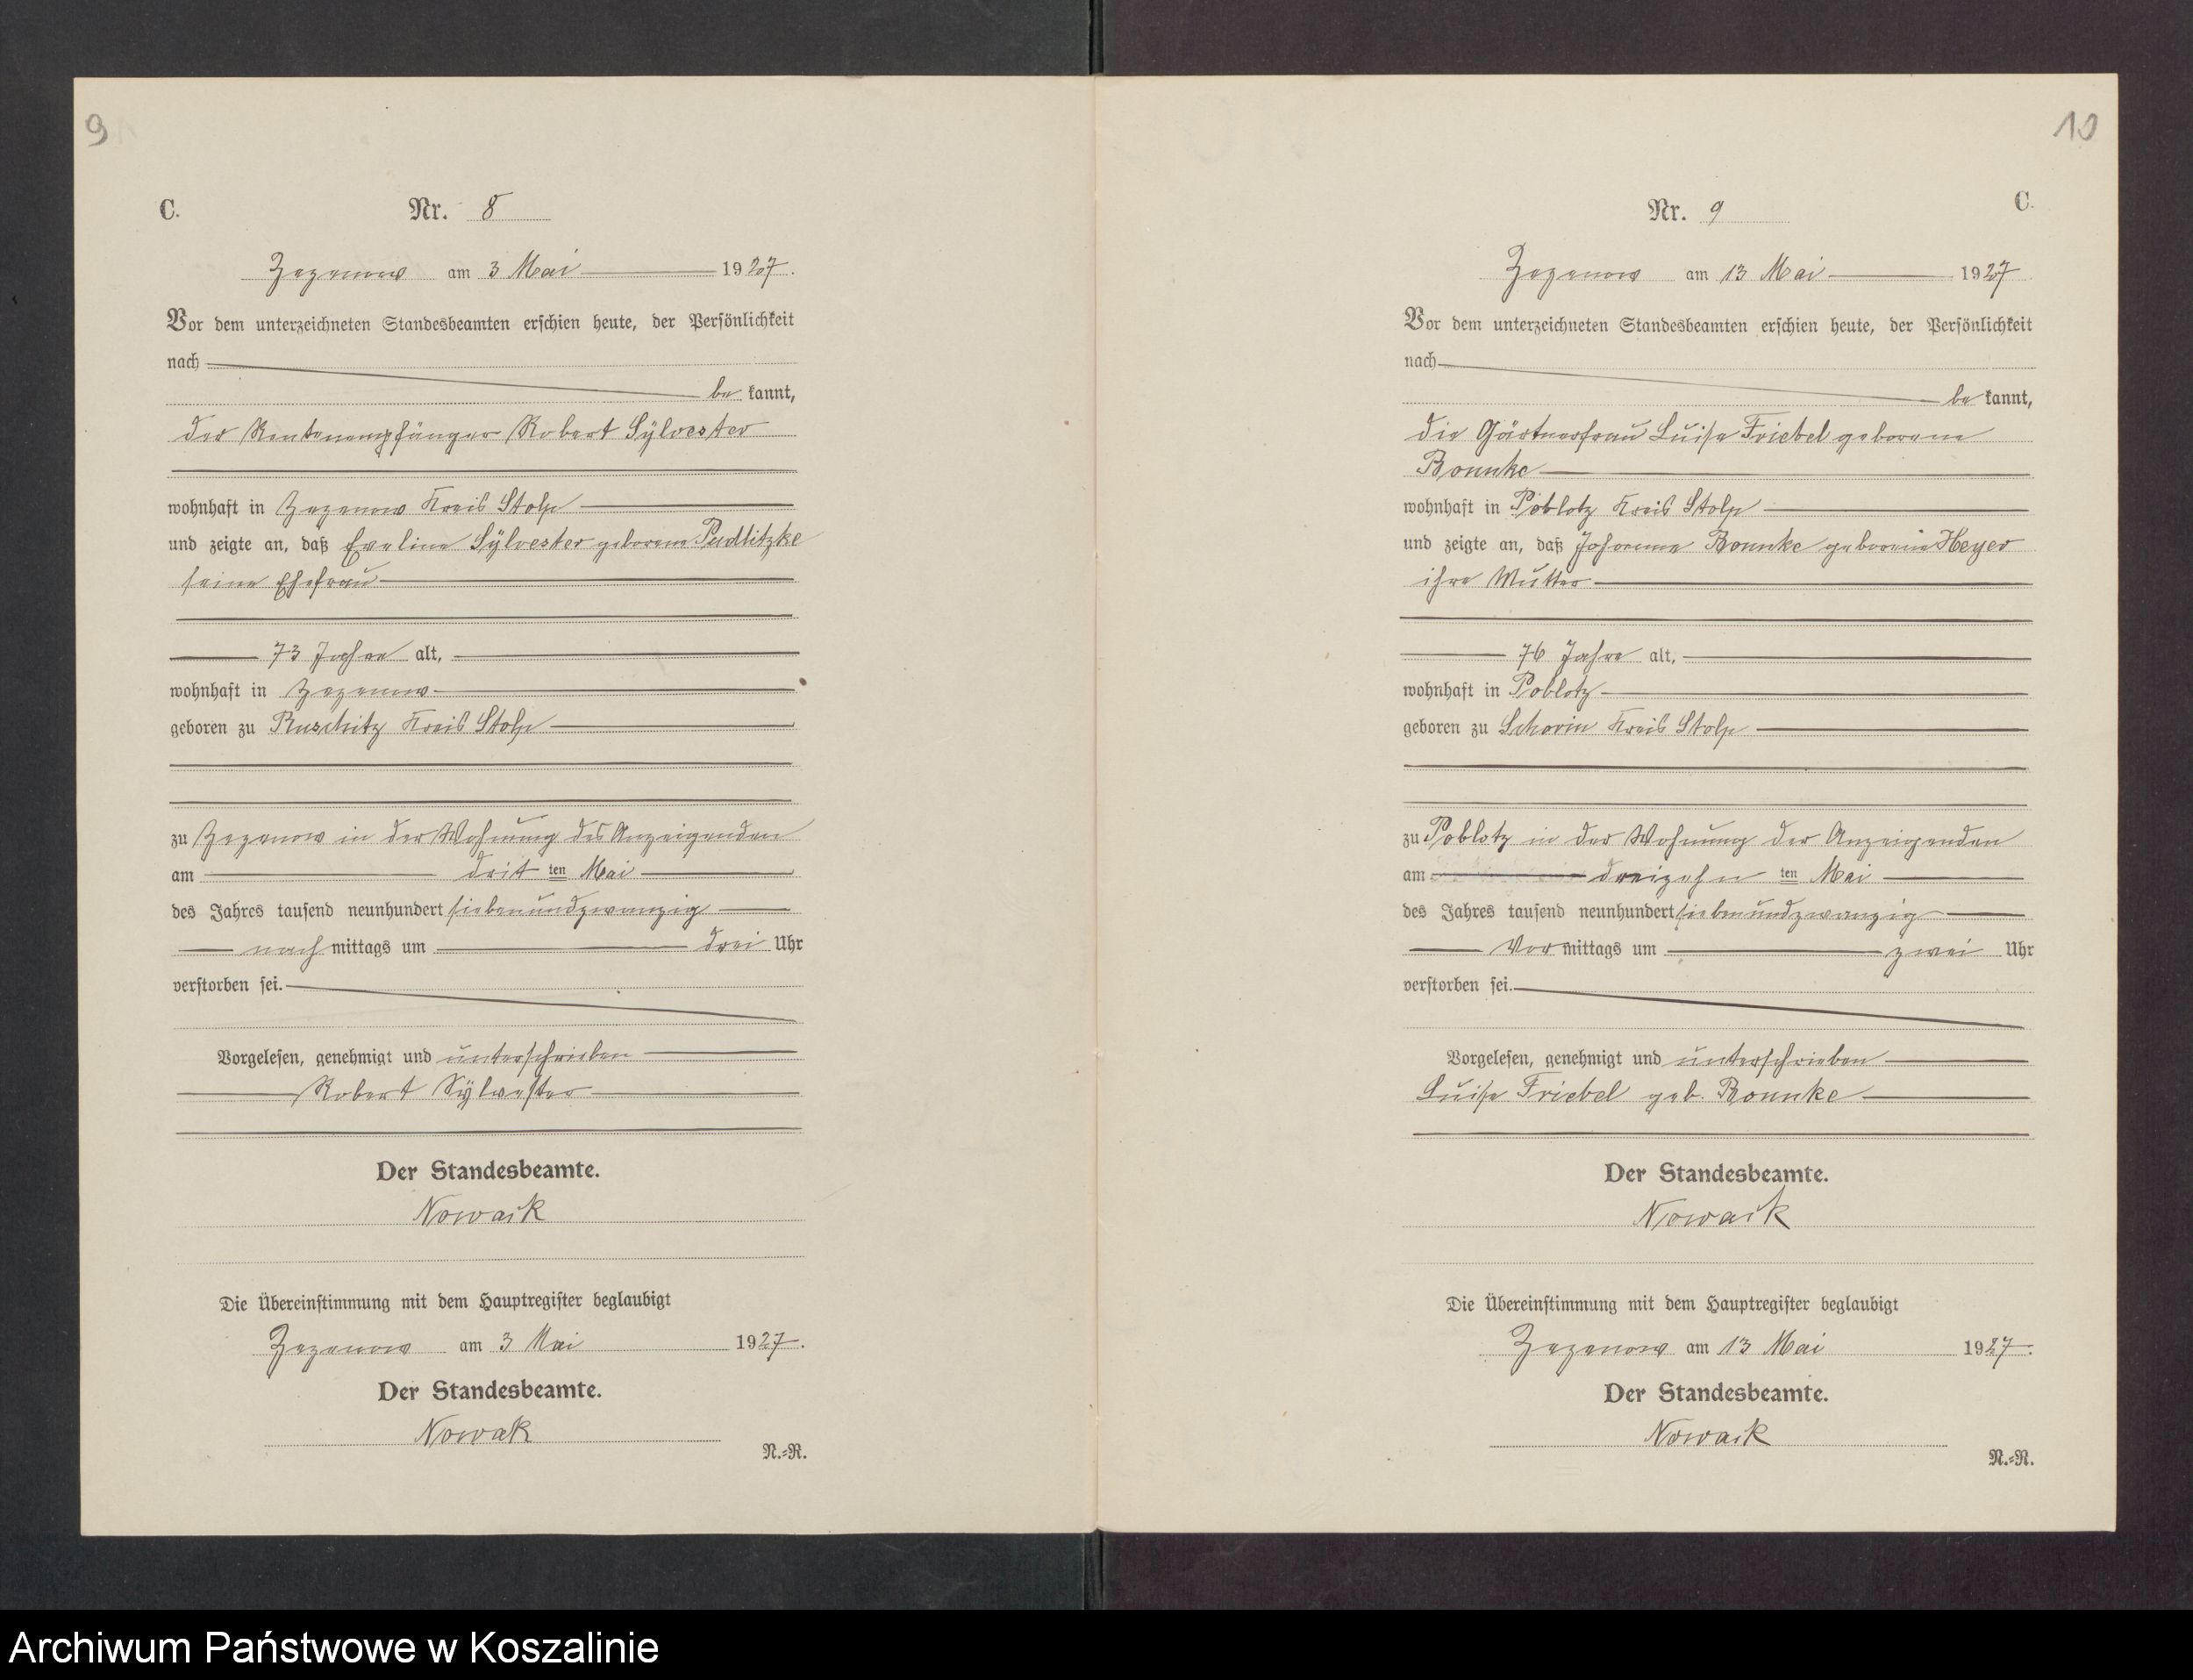 9
C.
Nr. 8
Zezenow am 3 Mai 1927.
Vor dem unterzeichneten Standesbeamten erschien heute, der Persönlichkeit
nach
be kannt,
der Rentenempfänger Robert Sylvester
wohnhaft in Zezenow Kreis Stolp
und zeigte an, daß Eveline Sylvester geborene Pudlitzke
seine Ehefrau
73 Jahre alt,
wohnhaft in Zezenow
geboren zu Ruschitz Kreis Stolp
zu Zezenow in der Wohnung des Anzeigenden
am drit ten Mai
des Jahres tausend neunhundert siebenundzwanzig
nach mittags um drei Uhr
verstorben sei.
Vorgelesen, genehmigt und unterschrieben
Robert Sylvester
Der Standesbeamte.
Nowak
Die Übereinstimmung mit dem Hauptregister beglaubigt
Zezenow am 3 Mai 1927.
Der Standesbeamte.
Nowak
N.=R.
10
C.
Nr. 9
Zezenow am 13 Mai 1927
Vor dem unterzeichneten Standesbeamten erschien heute, der Persönlichkeit
nach
be kannt,
die Gärtnerfrau Luise Friebel geborene
Bonnke
wohnhaft in Poblotz Kreis Stolp
und zeigte an, daß Johanna Bonnke geborene Heyer
ihre Mutter
76 Jahre alt,
wohnhaft in Poblotz
geboren zu Schorin Kreis Stolp
zu Poblotz in der Wohnung der Anzeigenden
am dreizehn ten Mai
des Jahres tausend neunhundert siebenundzwanzig
Vor mittags um zwei Uhr
verstorben sei.
Vorgelesen, genehmigt und unterschrieben
Luise Friebel geb. Bonnke
Der Standesbeamte.
Nowak
Die Übereinstimmung mit dem Hauptregister beglaubigt
Zezenow am 13 Mai 1927.
Der Standesbeamte.
Nowak
N.=R.
Archiwum Państwowe w Koszalinie